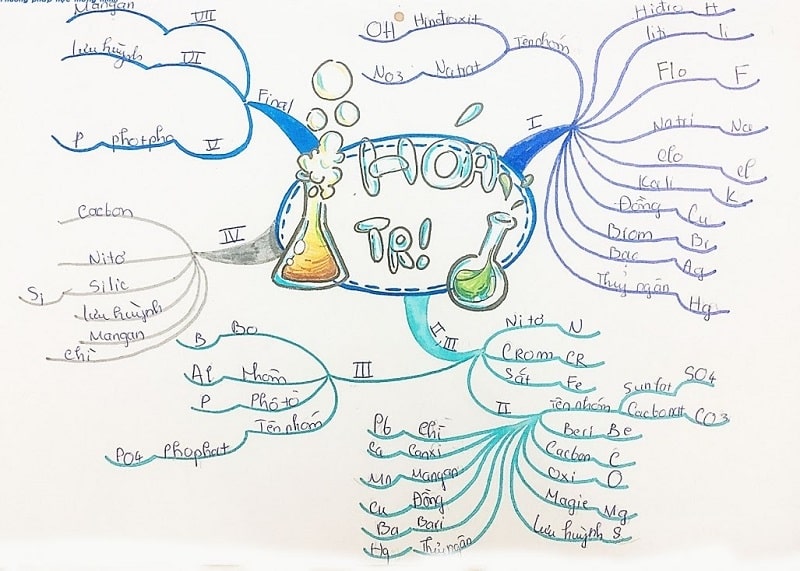 HOÁ
TRỊ
I
Hidro H
liti li
Flo F
Natri Na
Clo Cl
Kali K
Đồng Cu
Brom Br
Bạc Ag
Thuỷ ngân Hg
Tên nhóm
OH Hiđroxit
NO3 Natrat
II, III
Nitơ N
CRom CR
Sắt Fe
II
Tên nhóm
Sunfat SO4
Cacbonat CO3
Beri Be
Cacbon C
Oxi O
Magie Mg
Lưu huỳnh S
Pb Chì
Ca Canxi
Mn Mangan
Cu Đồng
Ba Bari
Hg Thuỷ ngân
III
B Bo
Al Nhôm
P Phốtpho
Tên nhóm
PO4 Phophat
IV
Cacbon
Nitơ
Si Silic
Lưu huỳnh
Mangan
Chì
Final
VII
Mangan
VI
Lưu huỳnh
V
P photpho